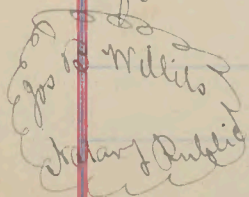 Jos B Willits
Notary Public